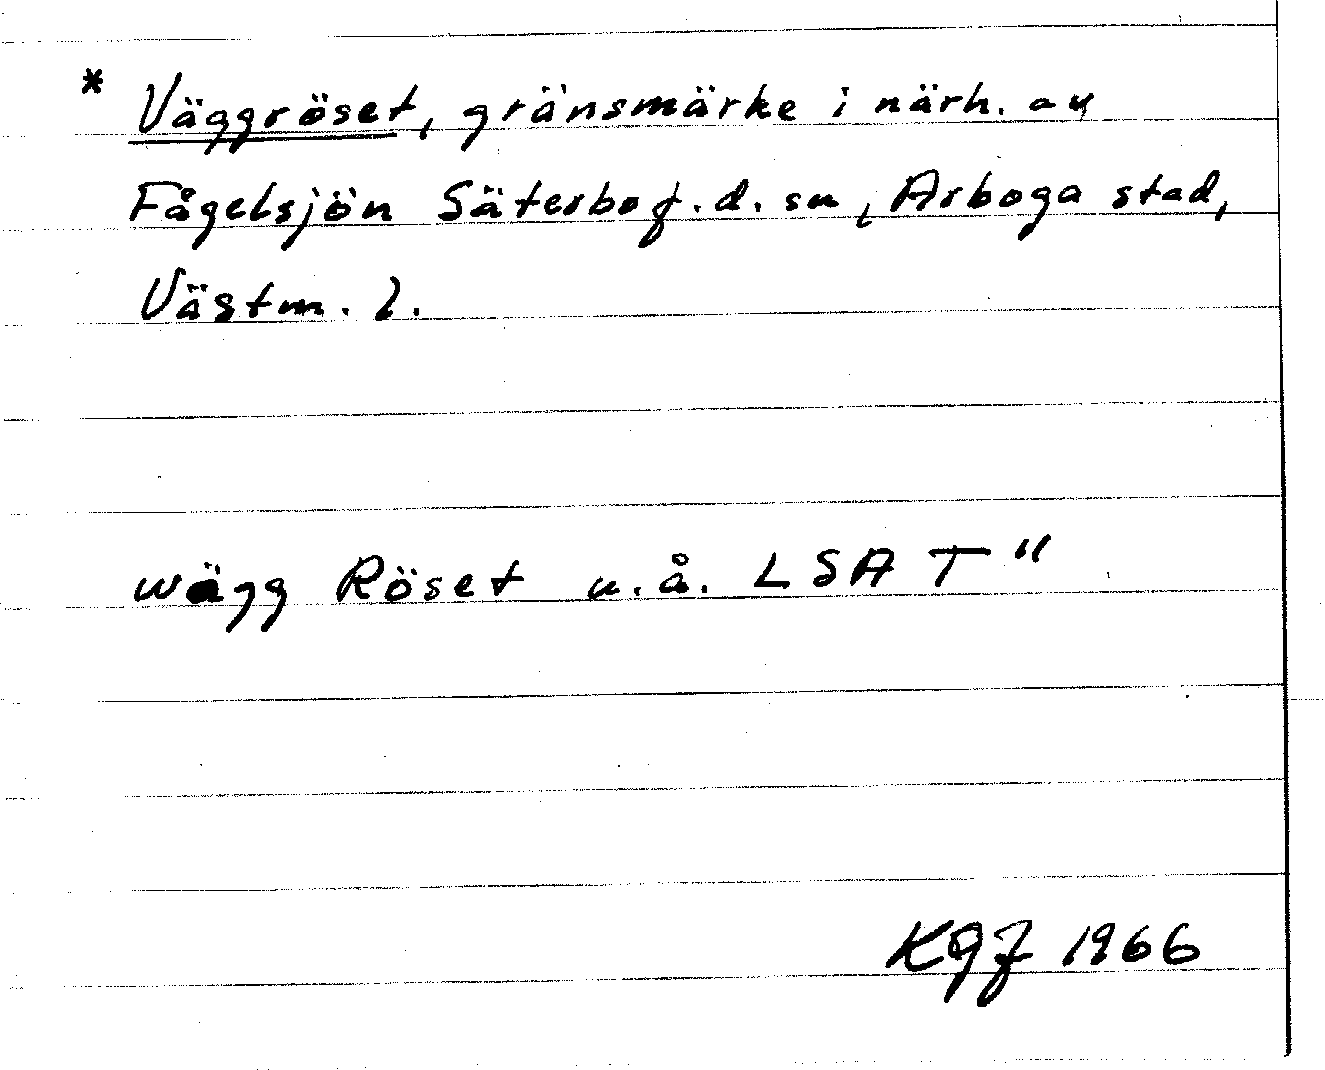 * Väggröset, gränsmärke i närh. av
Fågelsjön Säterbo f.d. sn, Arboga stad,
Västm. l.
wägg Röset u.å. LSA T"
KGF 1966